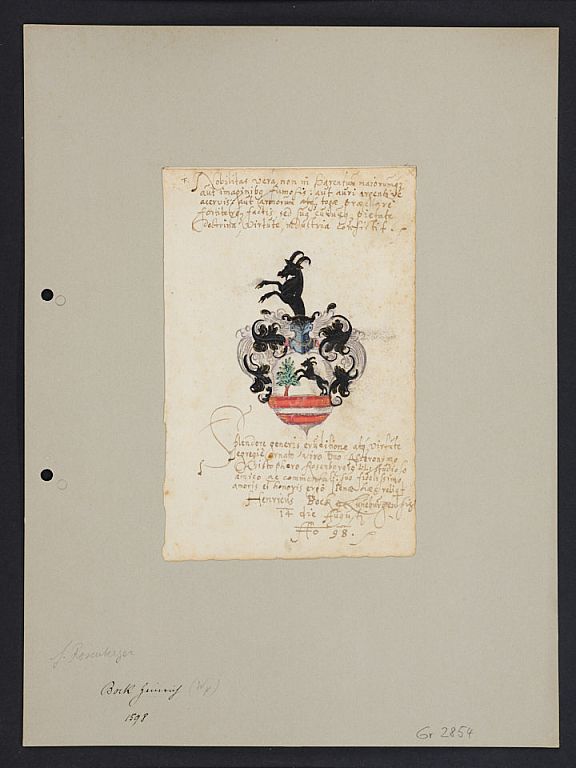 Nobilitas vera, non in Parentum maiorumq;
aut imaginibus fumosis: aut auri argentive
acervis: aut armorum atq togae praeclare
fortiterq factis sed sua cuiusq, pietate
doctrina, virtute, industria consistit.
Splendore generis eruditione atq Virtute
egregie ornato viro Dno Hieronymo
Christophero Rosenbergero
amico ac commensali suo fidelissimo
amoris et honoris ergo
Henricus Bock
14 die Augusti
Ao 98.
f. Rosenberger
Bock Heinrich (Wp)
1598
Gr 2854